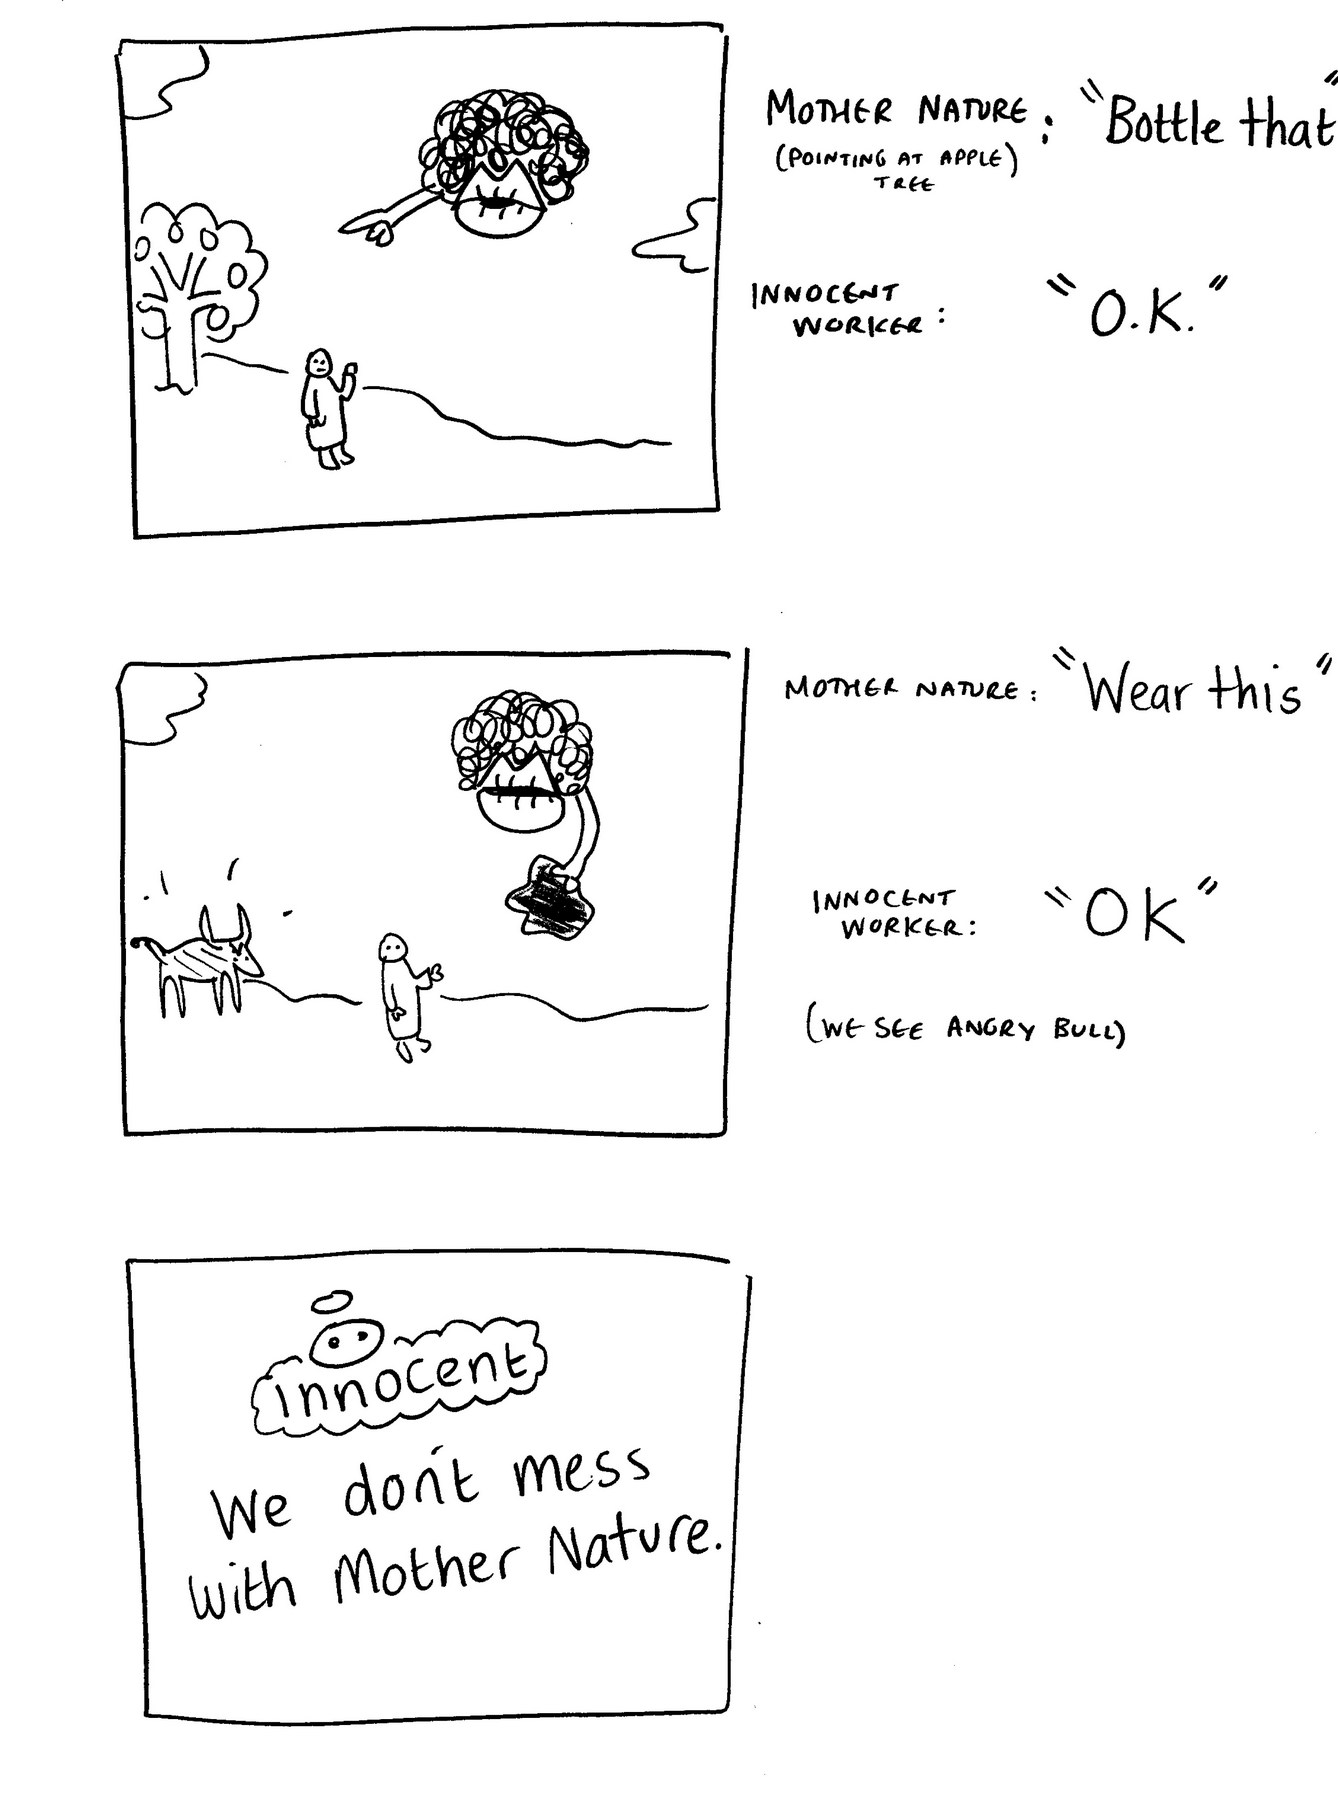 MOTHER NATURE : "Bottle that"
(POINTING AT APPLE)
TREE
INNOCENT
WORKER : "O.K."
MOTHER NATURE : "Wear this"
INNOCENT
WORKER: "OK"
(WE SEE ANGRY BULL)
innocent
We don't mess
with Mother Nature.